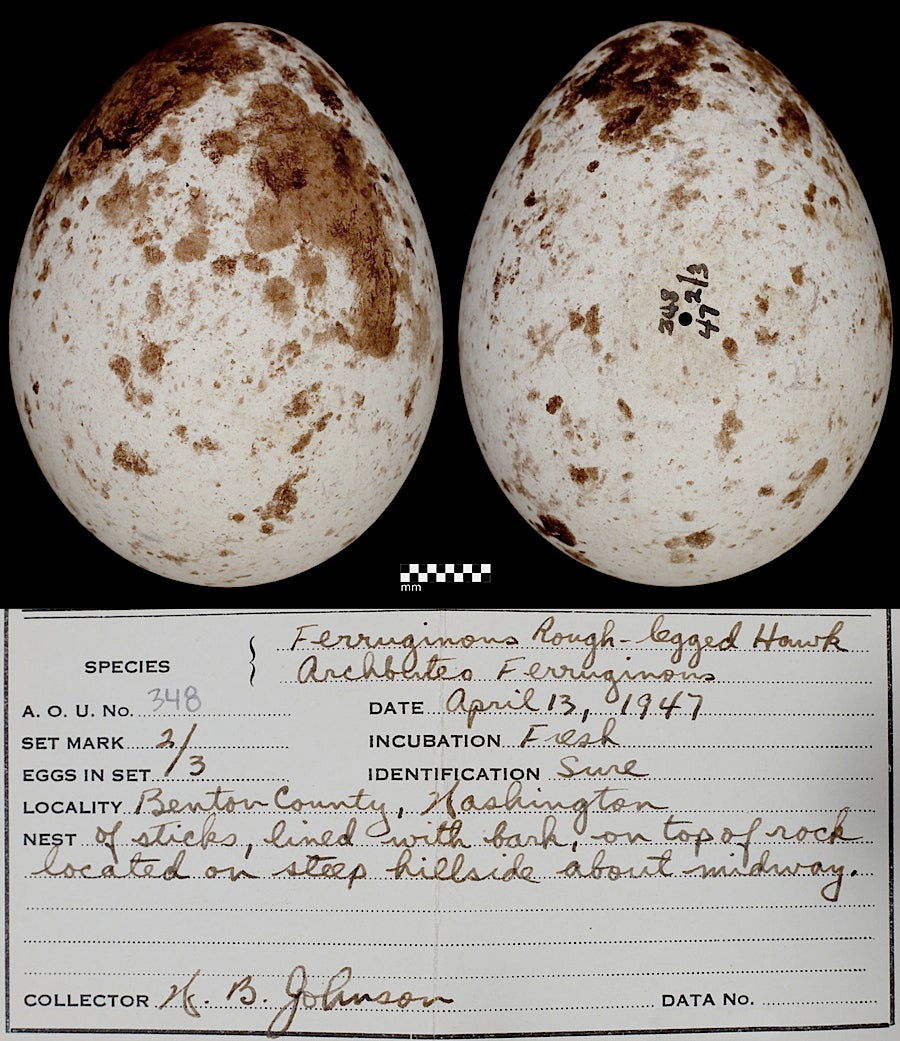 348
47 2/3
mm
SPECIES { Ferruginous Rough-legged Hawk
Archbuteo Ferruginous
A. O. U. No. 348 DATE April 13, 1947
SET MARK 2/ INCUBATION Fresh
EGGS IN SET /3 IDENTIFICATION Sure
LOCALITY Benton County, Washington
NEST of sticks, lined with bark, on top of rock
located on steep hillside about midway.
COLLECTOR H. B. Johnson DATA No.